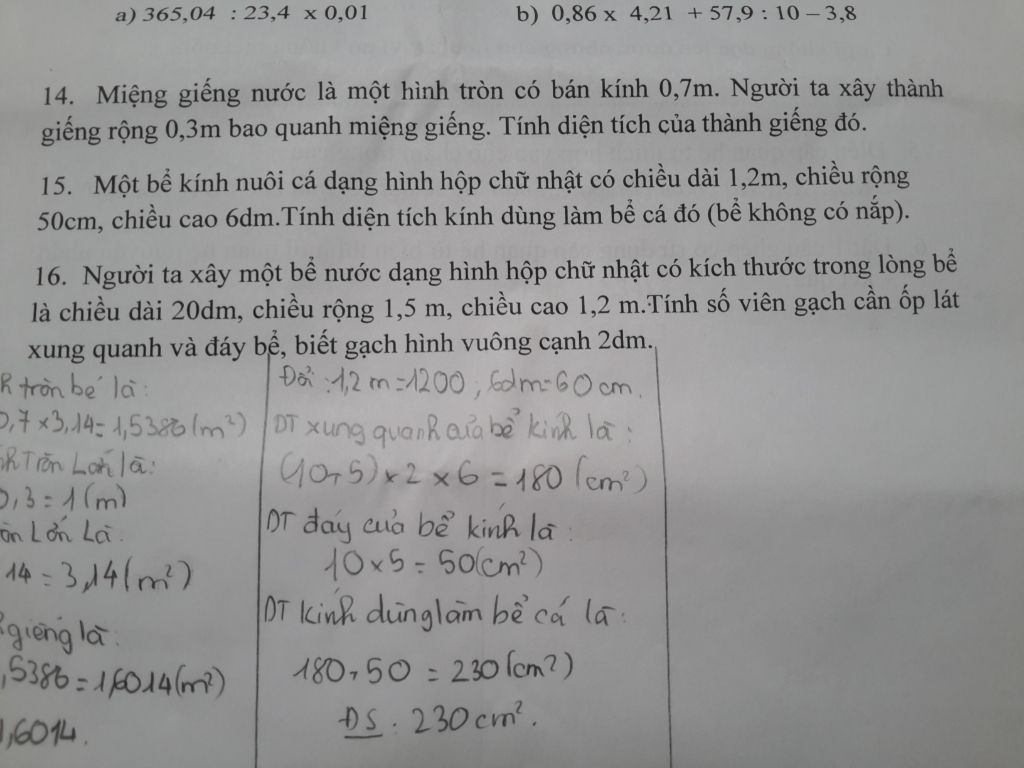 a) 365,04 : 23,4 x 0,01
b) 0,86 x 4,21 + 57,9 : 10 – 3,8
14. Miệng giếng nước là một hình tròn có bán kính 0,7m. Người ta xây thành
giếng rộng 0,3m bao quanh miệng giếng. Tính diện tích của thành giếng đó.
15. Một bể kính nuôi cá dạng hình hộp chữ nhật có chiều dài 1,2m, chiều rộng
50cm, chiều cao 6dm.Tính diện tích kính dùng làm bể cá đó (bể không có nắp).
16. Người ta xây một bể nước dạng hình hộp chữ nhật có kích thước trong lòng bể
là chiều dài 20dm, chiều rộng 1,5 m, chiều cao 1,2 m.Tính số viên gạch cần ốp lát
xung quanh và đáy bể, biết gạch hình vuông cạnh 2dm.
h tròn bé là:
0,7 x 3,14 = 1,5386 (m²)
nh Tròn Lớn là:
0,3 = 1 (m)
òn Lớn Là.
14 = 3,14 (m²)
giếng là:
,5386 = 1,6014 (m²)
1,6014.
Đổi : 1,2 m = 1200 ; 6dm = 60 cm.
DT xung quanh của bể kính là :
(10 + 5) x 2 x 6 = 180 (cm²)
DT đáy của bể kính là :
10 x 5 = 50 (cm²)
DT kính dùng làm bể cá là :
180 + 50 = 230 (cm²)
ĐS : 230 cm².